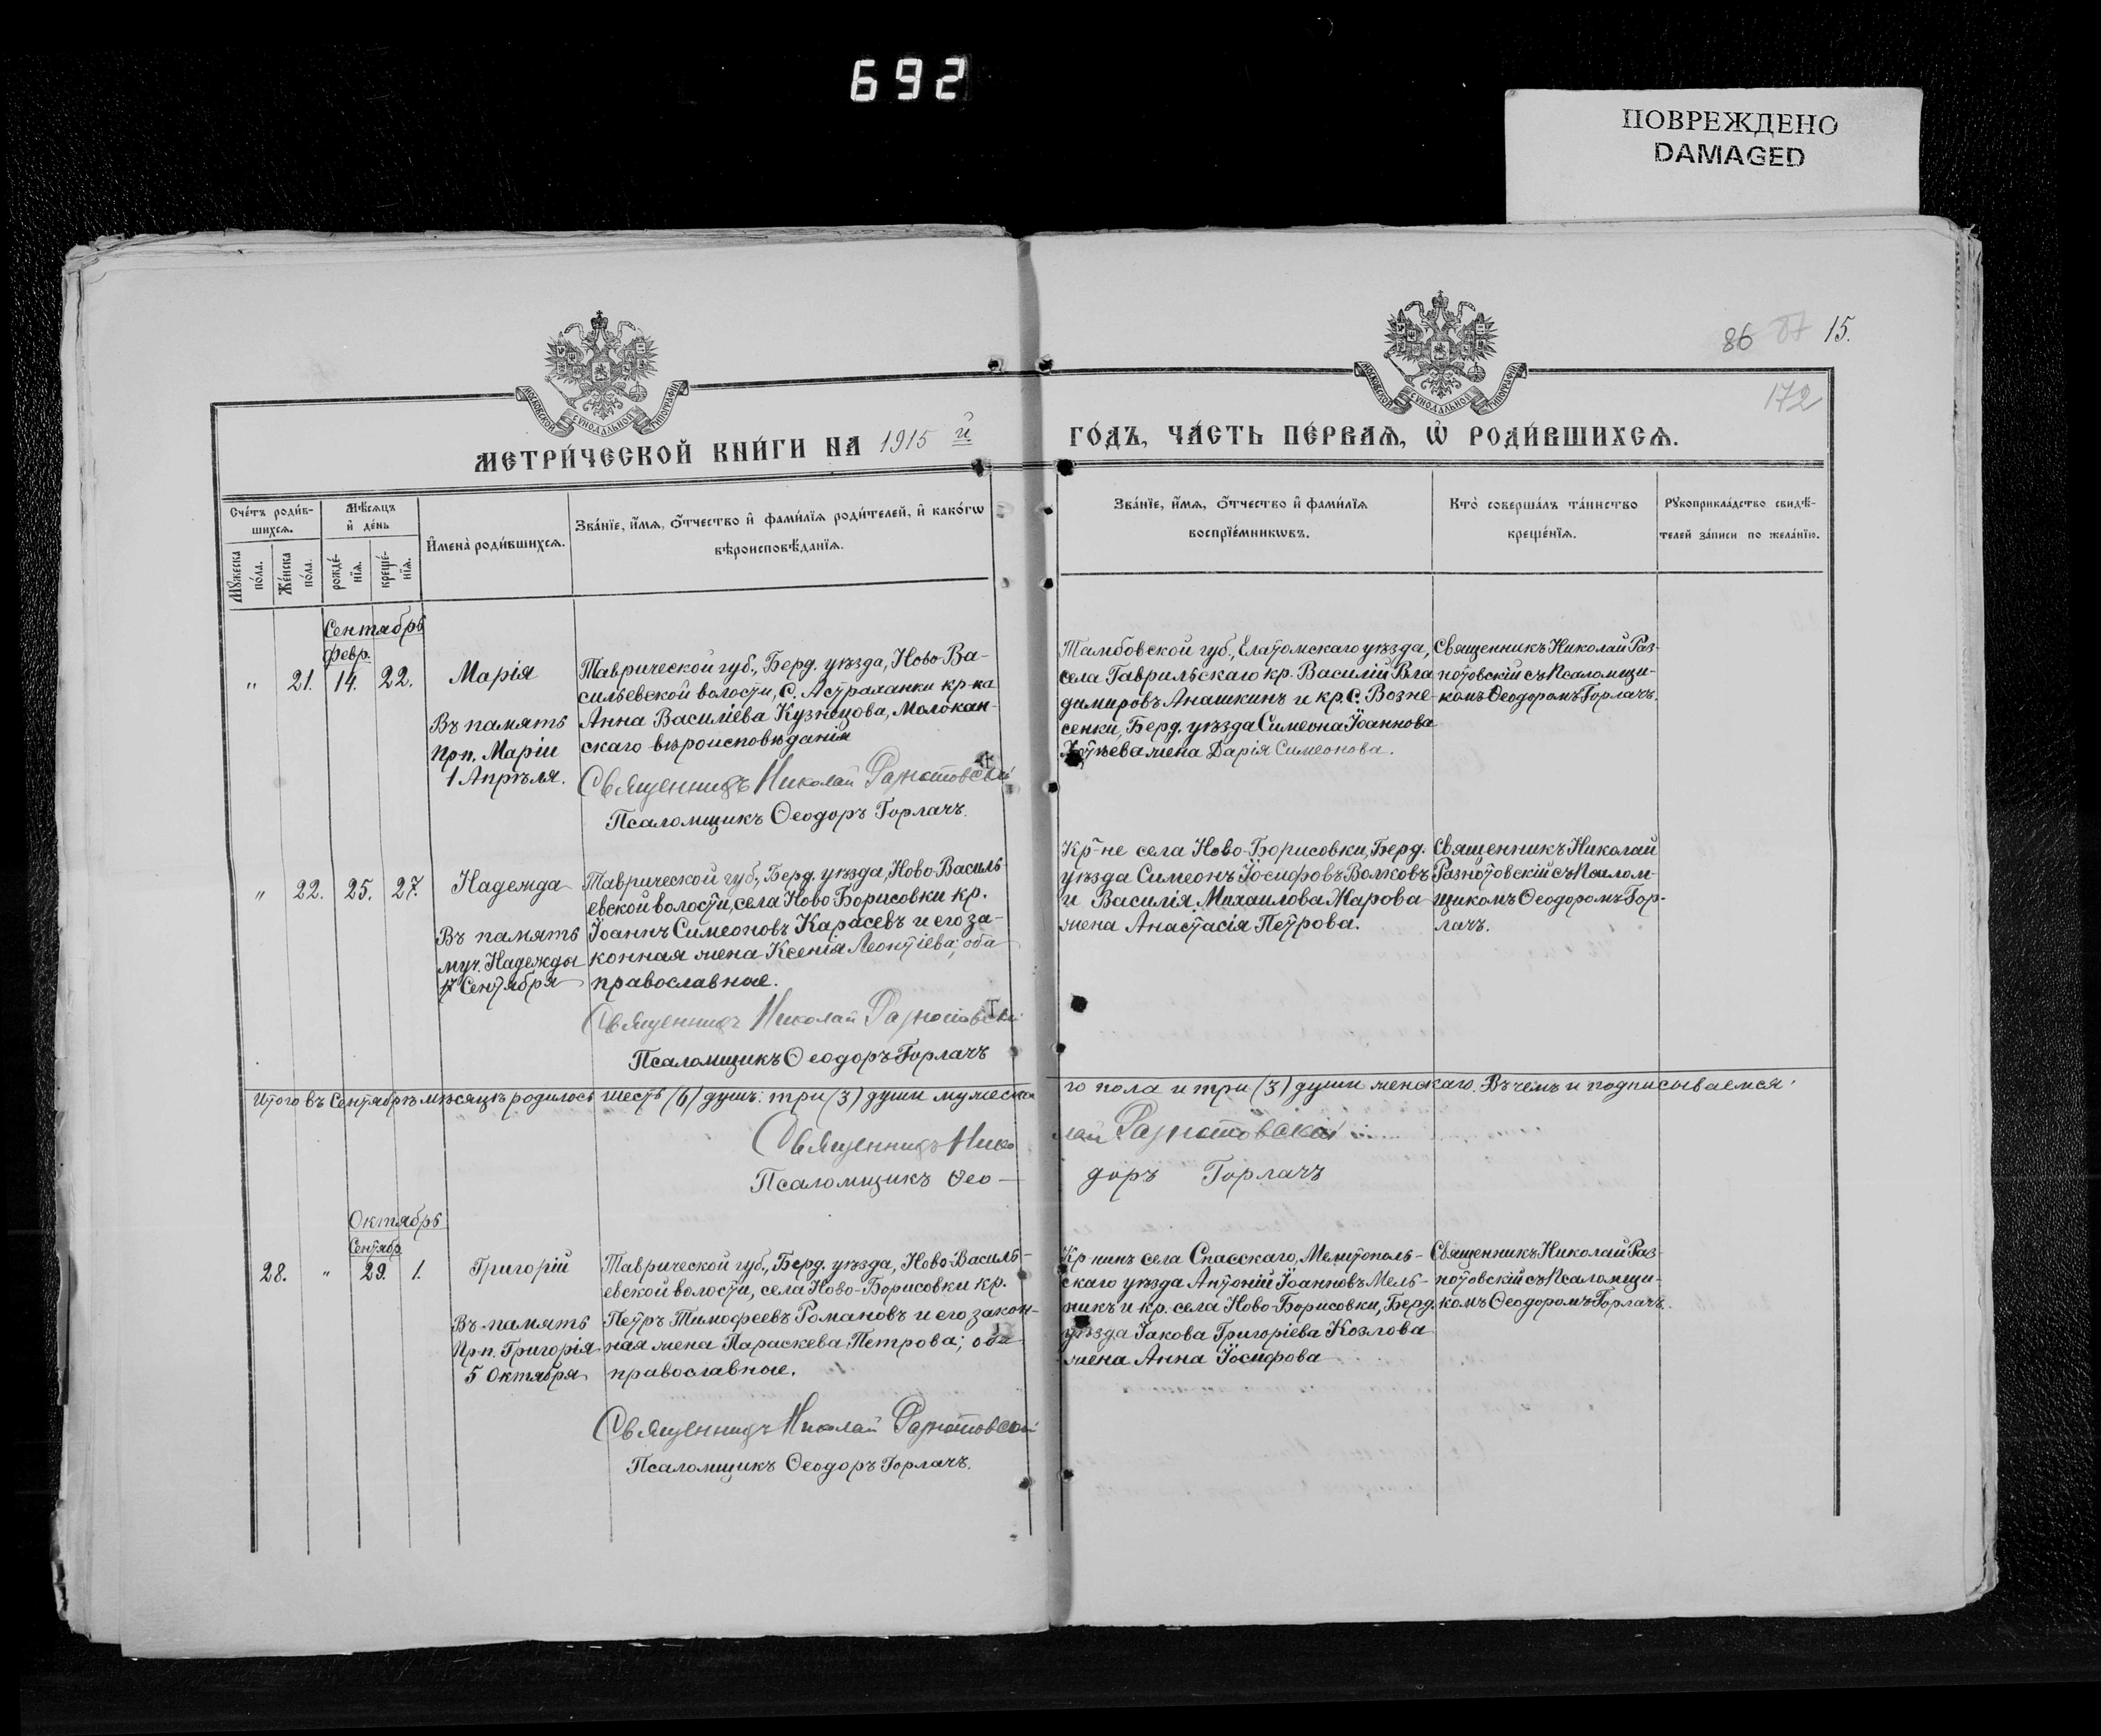 692
ПОВРЕЖДЕНО
DAMAGED
86 87 15.
172
МОСКОВСКОЙ СУНОДАЛЬНОЙ ТИПОГРАФІИ
МОСКОВСКОЙ СУНОДАЛЬНОЙ ТИПОГРАФІИ
МЕТРИ́ЧЕСКОЙ КНИ́ГИ НА 1915 й
ГО́ДЪ, ЧА́СТЬ ПЕ́РВАѦ, Ѡ РОДИ́ВШИХСѦ.
Сче́тъ роди́в-
шихсѧ.
Мѣ́сѧцъ
и҆ де́нь
Мꙋ́жеска
по́ла.
Же́нска
по́ла.
рожде́-
нїѧ.
креще́-
нїѧ.
И҆мена̀ роди́вшихсѧ.
Зва́нїе, и҆́мѧ, ѻ҆́тчество и҆ фами́лїѧ роди́телей, и҆ како́гѡ
вѣроисповѣ́данїѧ.
Зва́нїе, и҆́мѧ, ѻ҆́тчество и҆ фами́лїѧ
воспрїе́мникѡвъ.
Кто̀ соверша́лъ та́инство
креще́нїѧ.
Рꙋкоприкла́дство свидѣ́-
телей за́писи по жела́нїю.
Сентябрь
Февр.
" 21. 14. 22.
Марія
Въ память
Прп. Маріи
1 Апрѣля.
Таврической губ., Берд. уѣзда, Ново-Ва-
сильевской волости, С. Астраханки кр-ка
Анна Василіева Кузнецова, Молокан-
скаго вѣроисповѣданія
Священникъ Николай Разнотовскій
Псаломщикъ Ѳеодоръ Горлачъ.
Тамбовской губ., Елатомскаго уѣзда,
села Гаврильскаго кр. Василій Вла
димировъ Анашкинъ и кр. С. Возне-
сенки, Берд. уѣзда Симеона Іоаннова
жена Дарія Симеонова.
Священникъ Николай Раз-
нотовскій съ Псаломщи-
комъ Ѳеодоромъ Горлачъ.
" 22. 25. 27.
Надежда
Въ память
муч. Надежды
17 Сентября
Таврической губ., Берд. уѣзда, Ново-Василь-
евской волости, села Ново-Борисовки кр.
Іоаннъ Симеоновъ Карасевъ и его за-
конная жена Ксенія Леонтіева; оба
православные.
Священникъ Николай Разнотовскій
Псаломщикъ Ѳеодоръ Горлачъ
Кр-не села Ново-Борисовки, Берд.
уѣзда Симеонъ Іосифовъ Волковъ
и Василія Михаилова Жарова
жена Анастасія Петрова.
Священникъ Николай
Разнотовскій съ Псалом-
щикомъ Ѳеодоромъ Гор-
лачъ.
Итого въ Сентябрѣ мѣсяцѣ родилось шесть (6) душъ: три (3) души мужеска
го пола и три (3) души женскаго. Въ чемъ и подписываемся:
Священникъ Нико
лай Разнотовскій
Псаломщикъ Ѳео-
доръ Горлачъ
Октябрь
Сентябр.
28. " 29. 1.
Григорій
Въ память
Прп. Григорія
5 Октября
Таврической губ., Берд. уѣзда, Ново-Василь-
евской волости, села Ново-Борисовки кр.
Петръ Тимофеевъ Романовъ и его закон-
ная жена Параскева Петрова; оба
православные.
Священникъ Николай Разнотовскій
Псаломщикъ Ѳеодоръ Горлачъ.
Кр-нинъ села Спасскаго, Мелитополь-
скаго уѣзда Антоній Іоанновъ Мель-
никъ и кр. села Ново-Борисовки, Берд.
уѣзда Іакова Григоріева Козлова
жена Анна Іосифова
Священникъ Николай Раз-
нотовскій съ Псаломщи-
комъ Ѳеодоромъ Горлачъ.